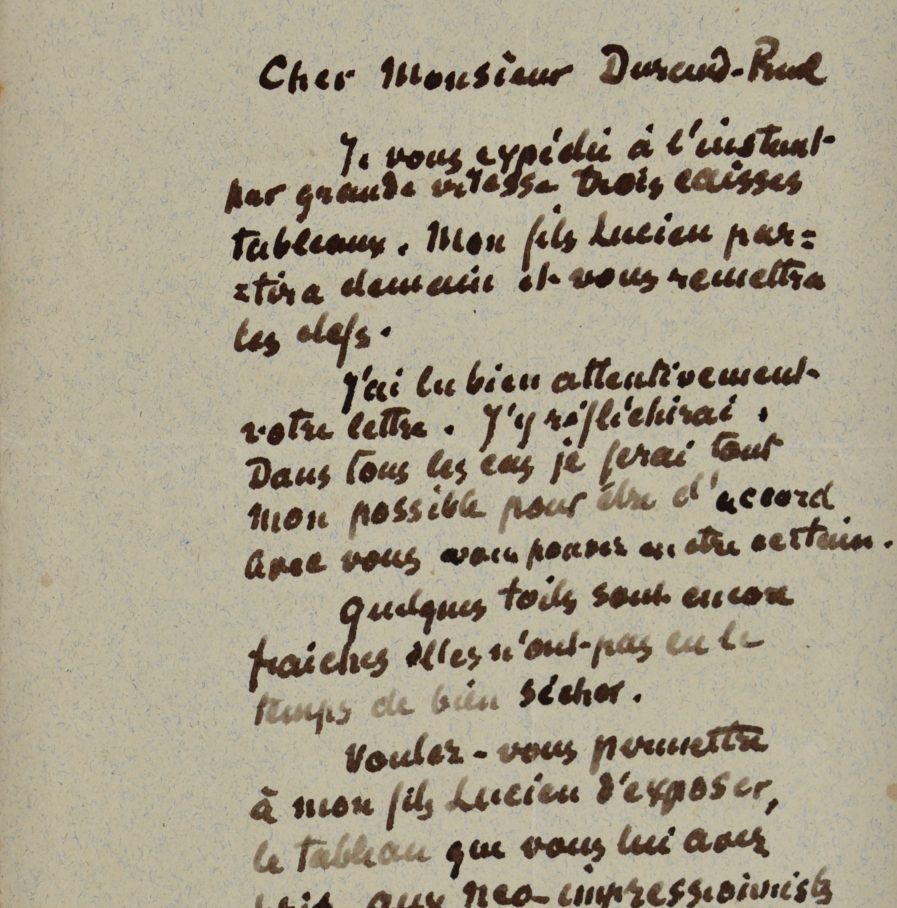 Cher Monsieur Durand-Ruel
Je vous expédie à l'instant
par grande vitesse trois caisses
tableaux. Mon fils Lucien par=
=tira demain et vous remettra
les clefs.
J'ai lu bien attentivement
votre lettre. J'y réfléchirai.
Dans tous les cas je ferai tout
mon possible pour être d'accord
avec vous vous pouvez en être certain.
Quelques toiles sont encore
fraiches elles n'ont pas eu le
temps de bien sécher.
Voulez-vous permettre
à mon fils Lucien d'exposer,
le tableau que vous lui avez
pris aux Neo-impressionnistes